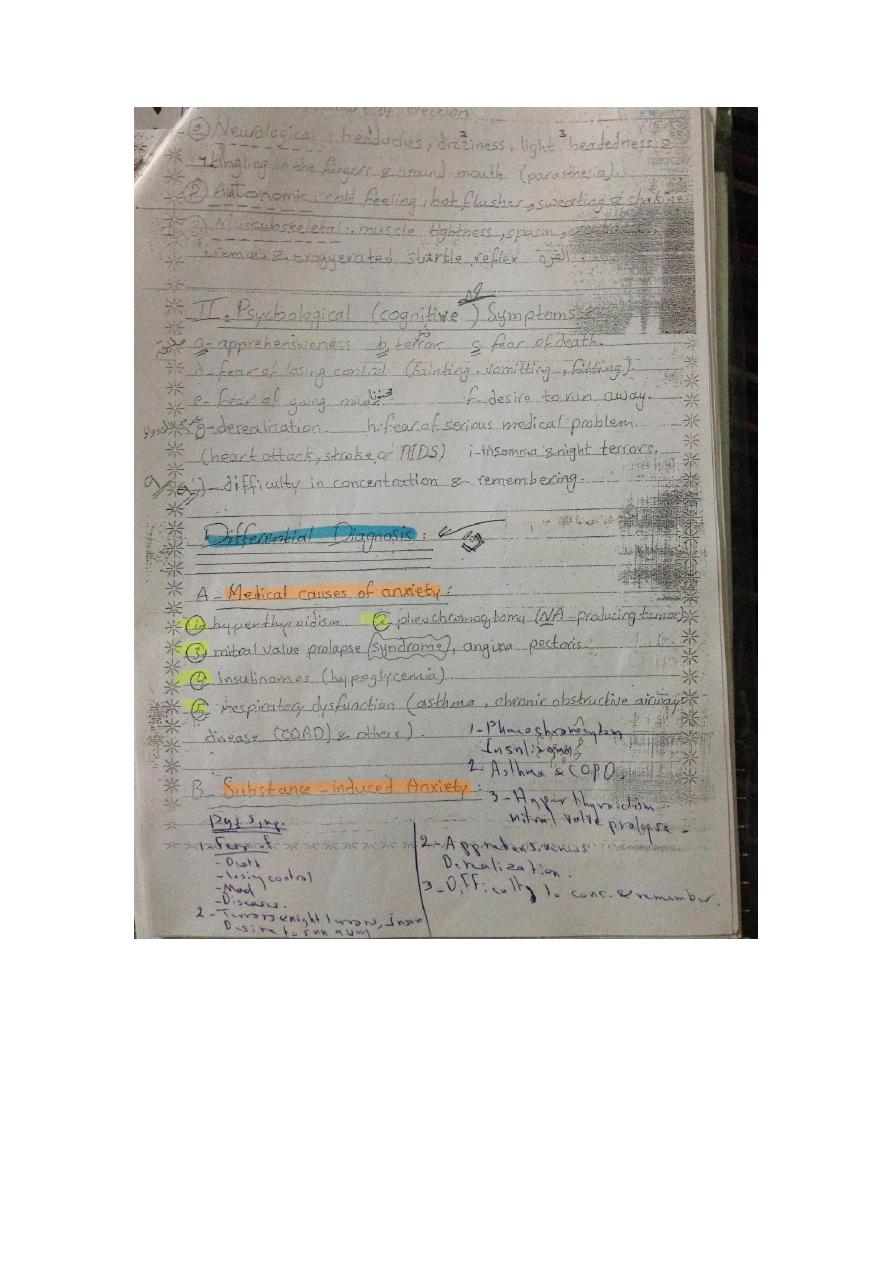 of erection
e) Neurological : headaches, dizziness, light headedness &
tingling in the fingers & around mouth (parasthesia).
② Autonomic : cold feeling, hot flushes, sweating &
③ Musculoskeletal : muscle tightness, spasm,
tremors & exaggerated startle reflex
II. Psychological (cognitive) Symptoms:
a- apprehensiveness b- terror c- fear of death.
d- fear of losing control (fainting, vomitting, fitting).
e- fear of going mad f- desire to run away.
g- derealization. h- fear of serious medical problem
(heart attack, stroke, or AIDS) i- insomnia & night terrors.
j- difficulty in concentration & remembering.
Differential Diagnosis :
A- Medical causes of anxiety :
① hyperthyroidism. ② pheochromocytoma (NA-producing tumor)
③ mitral valve prolapse (syndrome), angina pectoris.
④ insulinomas (hypoglycemia)
⑤ respiratory dysfunction (asthma, chronic obstructive airway
disease (COAD) & others).
1- Phaeochromocytom
Insulinoma
2- Asthma & COPD.
B- Substance-induced Anxiety :
3- Hyperthyroidism
mitral valve prolapse -
1- Fear of
- Death
- losing control
- Mad
- Diseases.
2- Terrors & night terrors, Insom
Desire to run away
2- Apprehensivenus
Derealization.
3- Difficulty to conc. & remember.